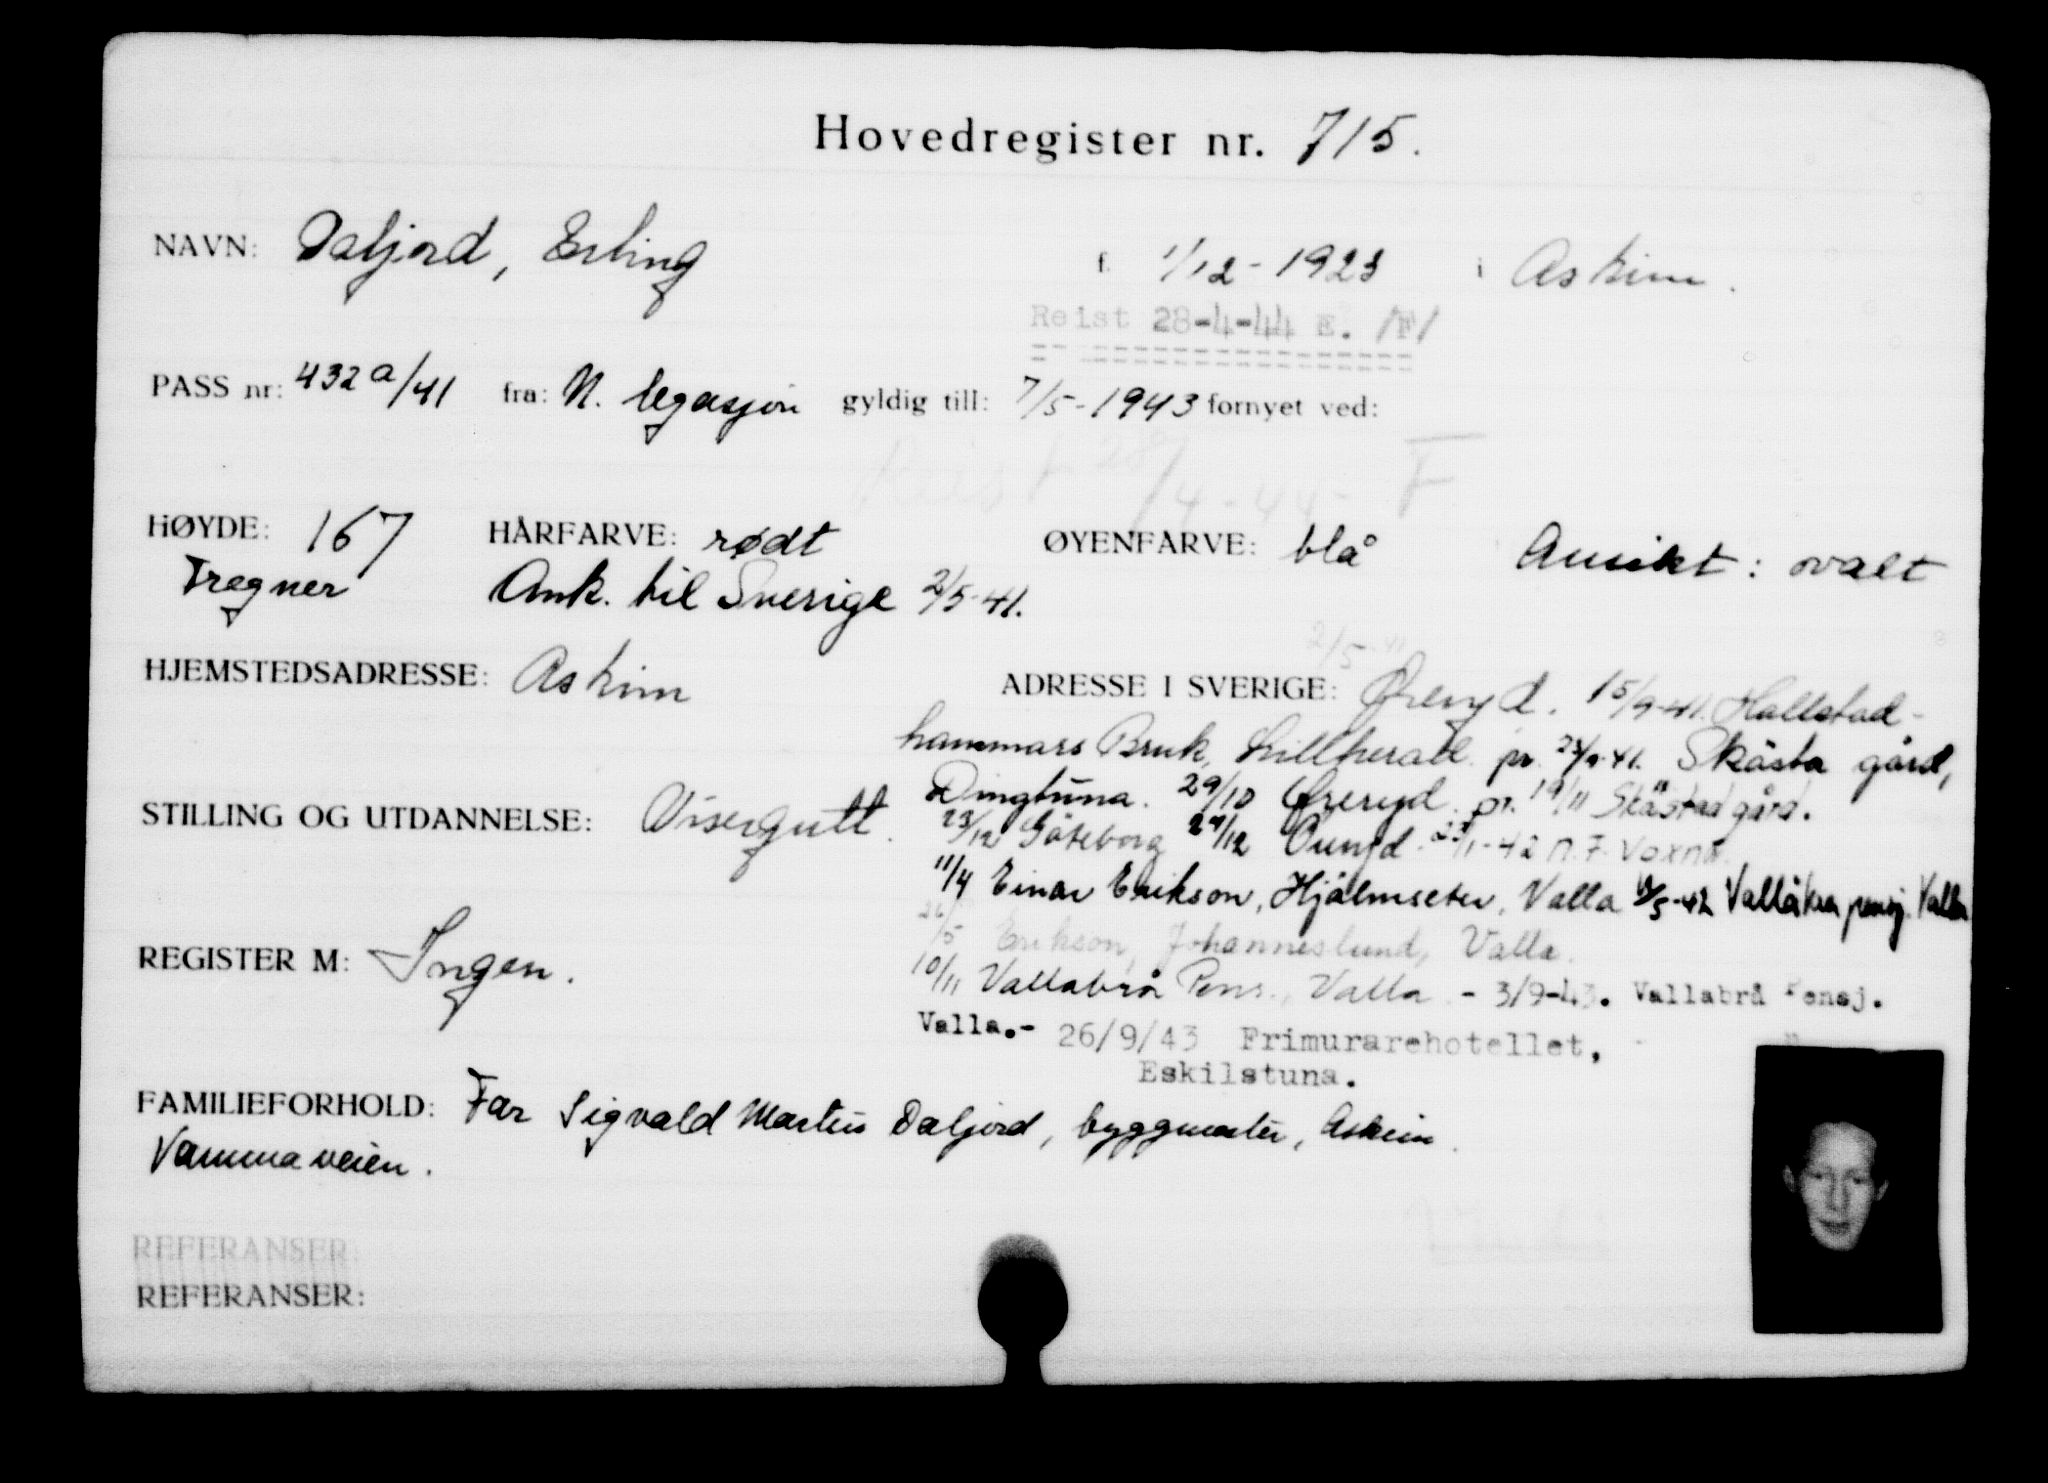 Hovedregister nr. 715.
NAVN: Daljord, Erling f. 1/12-1923 i Askim.
Reist 28-4-44 E. /F/
PASS nr: 432a/41 fra: N. legasjon gyldig till: 7/5-1943 fornyet ved:
Reist 28/4-44- F
HØYDE: 167 HÅRFARVE: rødt ØYENFARVE: blå Ansikt: ovalt
Tregner Ank. til Sverige 2/5-41.
2/5-41
HJEMSTEDSADRESSE: Askim ADRESSE I SVERIGE: Øreryd. 15/9-41. Hallstad-
hammars Bruk, Lillherad pr. Skåsta gård,
STILLING OG UTDANNELSE: Visergutt. Dingtuna. 29/10 Øreryd. pr. 19/11 Skästad gård.
23/12 Göteborg 24/12 23/1-42 N.F. Voxna.
11/4 Einar Erikson, Hjälmseter, Valla Vallåkra pensj. Valla
26/5 Erikson, Johanneslund, Valla.
REGISTER M: Ingen. 10/11 Vallabrå Pens., Valla - 3/9-43. Vallabrå Pensj.
Valla.- 26/9/43 Frimurarehotellet,
Eskilstuna.
FAMILIEFORHOLD: Far Sigvald Martin Daljord, byggmester, Askim.
Vammaveien.
REFERANSER:
REFERANSER: